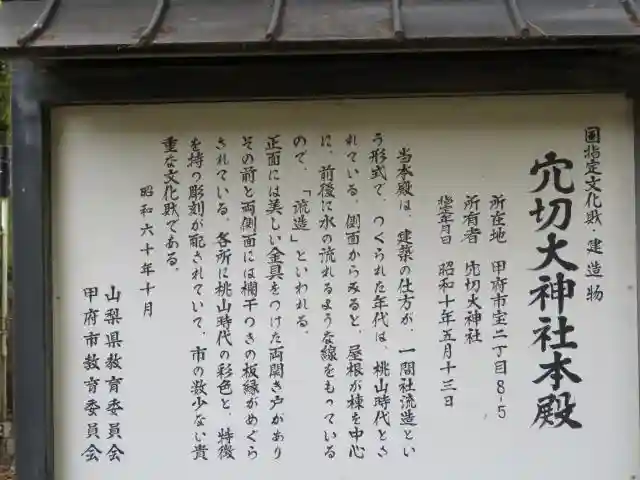 国指定文化財・建造物
穴切大神社本殿
所在地　甲府市宝二丁目8-5
所有者　穴切大神社
指定年月日　昭和十年五月十三日
当本殿は、建築の仕方が、一間社流造とい
う形式で、つくられた年代は、桃山時代とさ
れている。側面からみると、屋根が棟を中心
に、前後に水の流れるような線をもっている
ので、「流造」といわれる。
正面には美しい金具をつけた両開き戸があり
その前と両側面には欄干つきの板縁がめぐら
されている。各所に桃山時代の彩色と、特徴
を持つ彫刻が配されていて、市の数少ない貴
重な文化財である。
昭和六十年十月
山梨県教育委員会
甲府市教育委員会